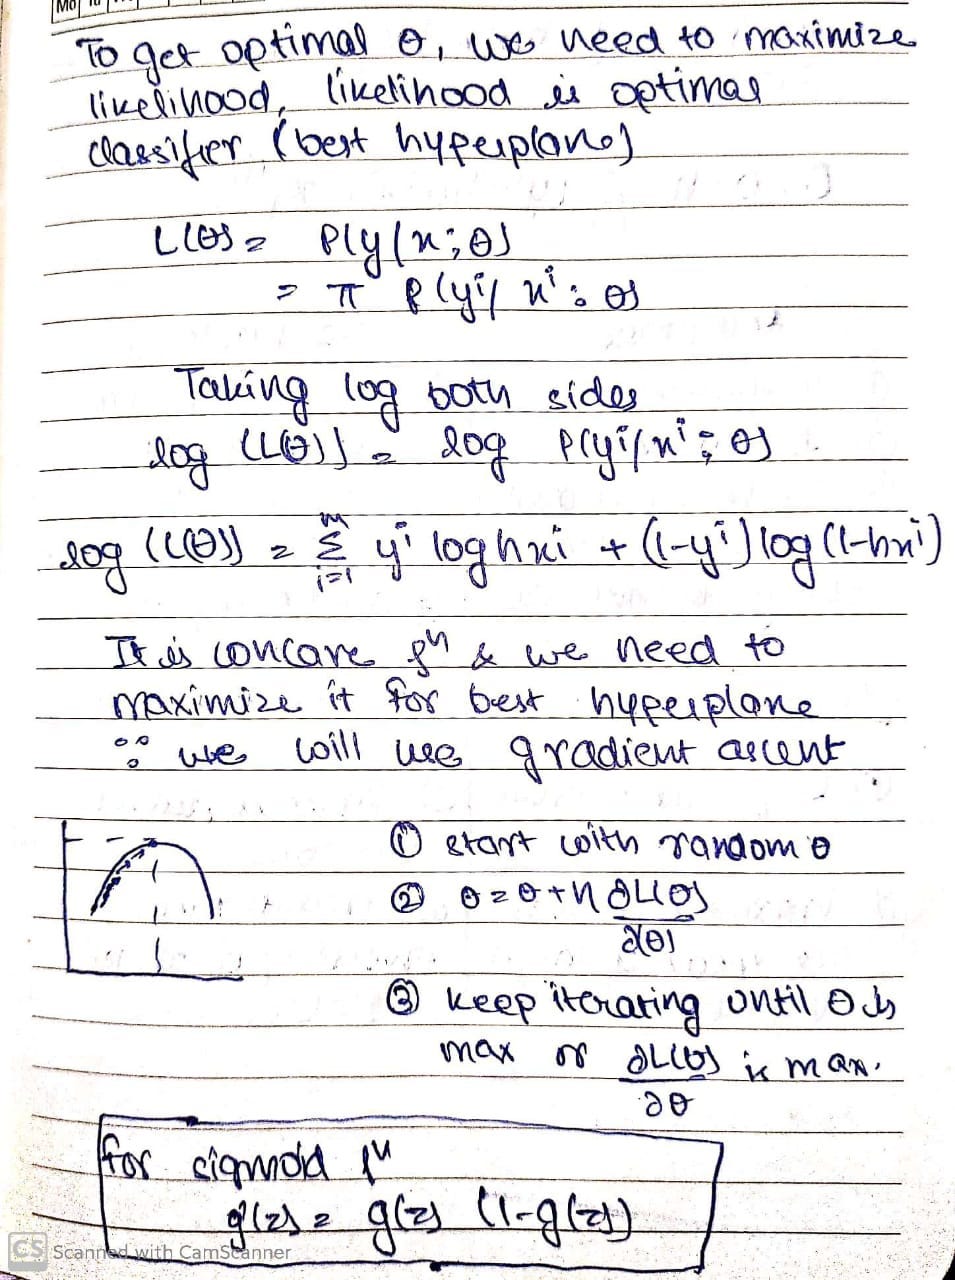 Mo
To get optimal θ, we need to maximize
likelihood, likelihood is optimal
classifier (best hyperplane)
L(θ) = P(y/x;θ)
= π P(yⁱ/xⁱ;θ)
Taking log both sides
log (L(θ)) = log P(yⁱ/xⁱ;θ)
log (L(θ)) = Σ_{i=1}^{m} yⁱ log hxi + (1-yⁱ) log (1-hxⁱ)
It is concave fⁿ & we need to
maximize it for best hyperplane
∴ we will use gradient ascent
① start with random θ
② θ = θ + η ∂L(θ)
∂(θ)
③ keep iterating until θ is
max or ∂L(θ) is max.
∂θ
for sigmoid fⁿ
g'(z) = g(z) (1-g(z))
CS Scanned with CamScanner